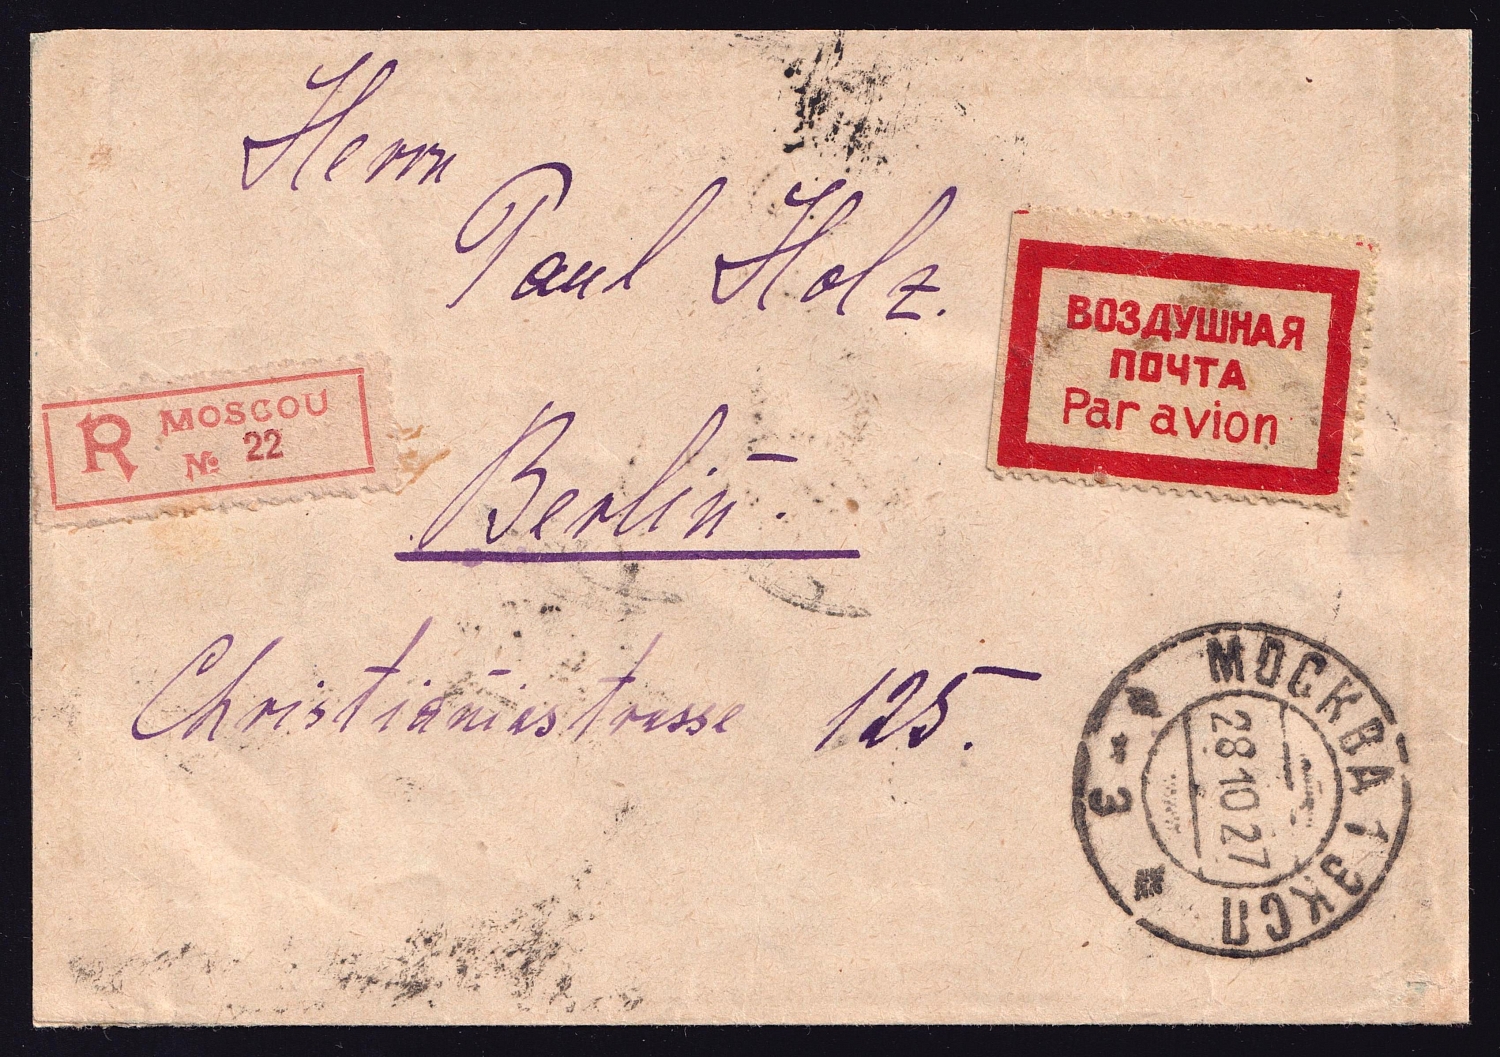 Herrn
Paul Holz.
ВОЗДУШНАЯ
ПОЧТА
Par avion
R MOSCOU
№ 22
Berlin.
Christianiastrasse 125.
МОСКВА 1 ЭКСП
28 10 27
* 3